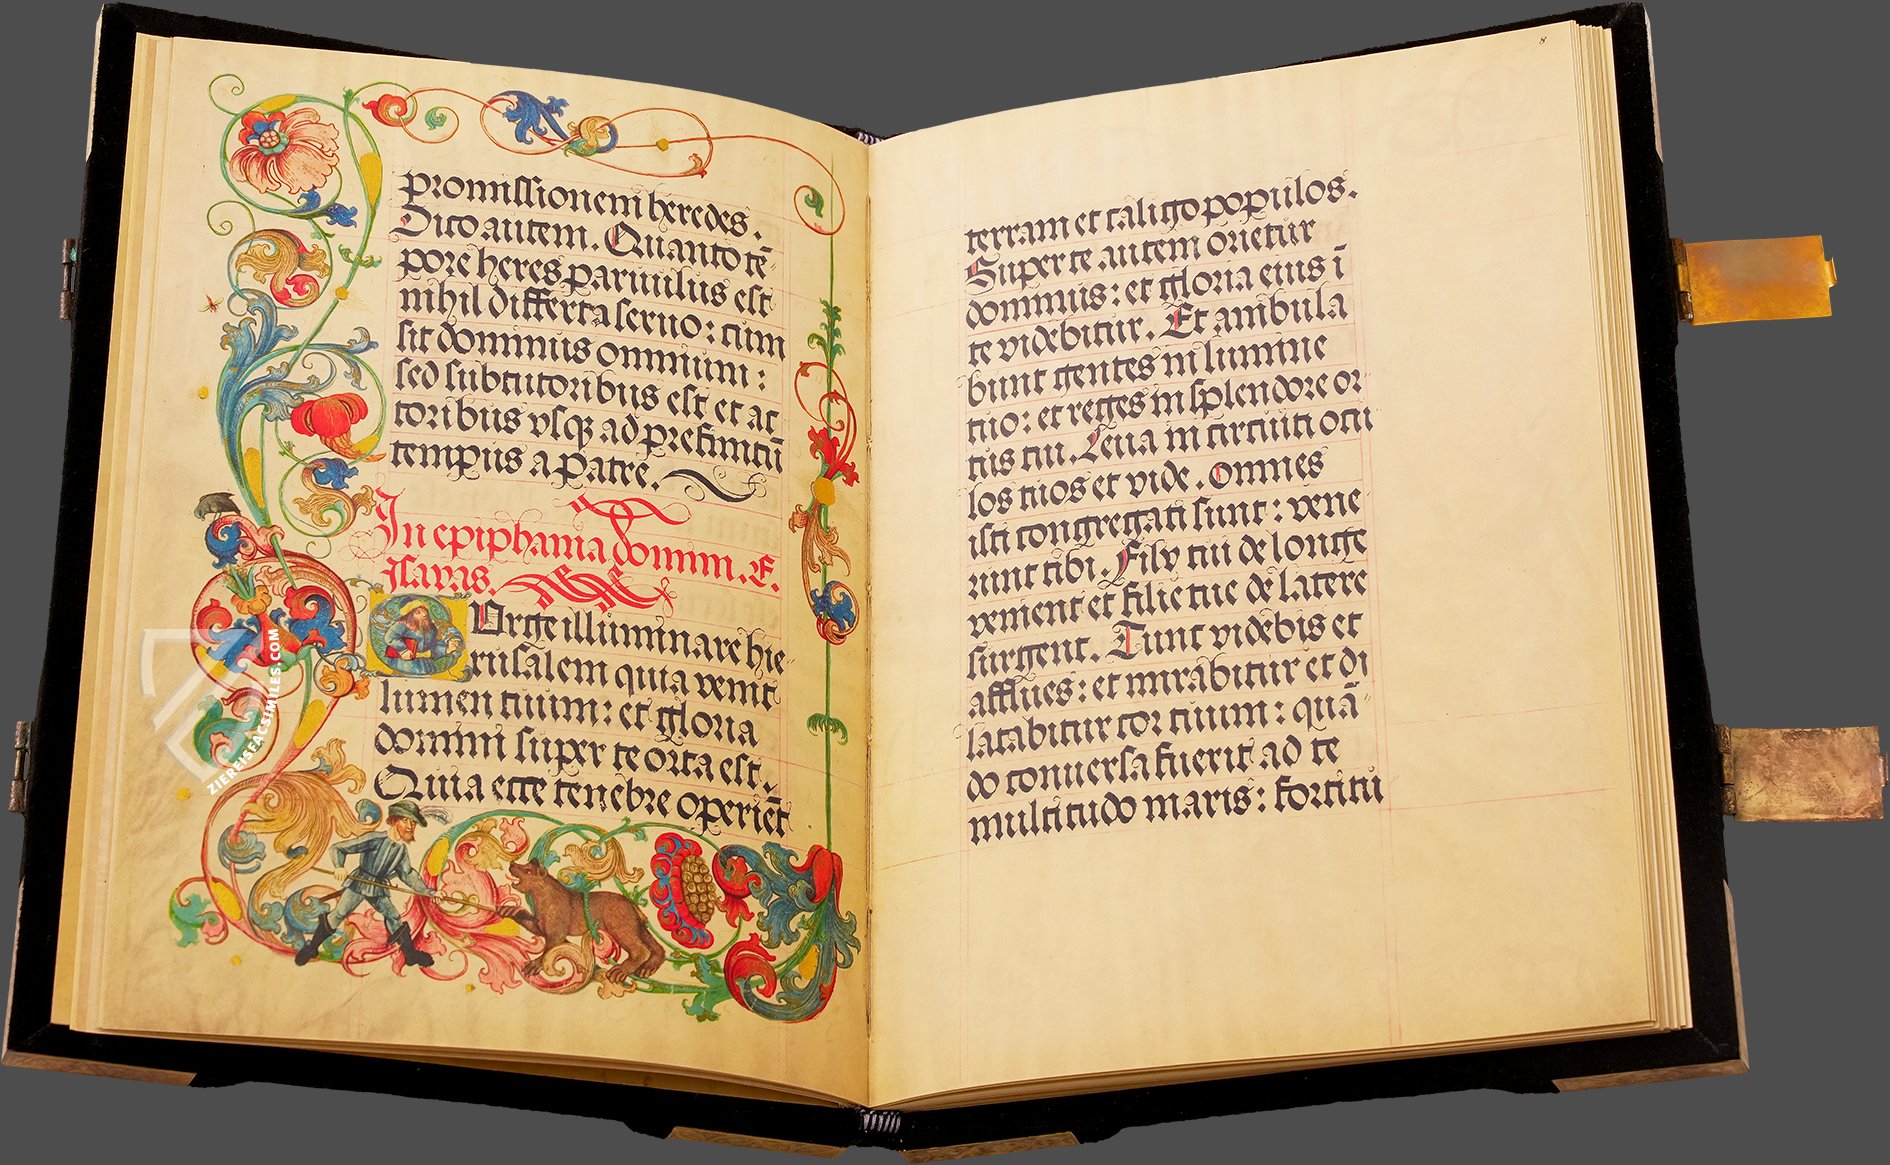 promissionem heredes.
Dico autem. Quanto tē
pore heres paruulus est
nihil differt a seruo: cum
sit dominus omnium:
sed sub tutoribus est et ac
toribus vsq̄ ad prefinitū
tempus a patre.
In epiphania domini. E.
Isayas.
Vrge illuminare hie
rusalem quia venit
lumen tuum: et gloria
domini super te orta est.
Quia ecce tenebre operiēt
8
terram et caligo populos.
Super te autem orietur
dominus: et gloria eius ī
te videbitur. Et ambula
bunt gentes in lumine
tuo: et reges in splendore or
tus tui. Leua in circuitu ocu
los tuos et vide. Omnes
isti congregati sunt: vene
runt tibi. Filij tui de longe
venient et filie tue de latere
surgent. Tunc videbis et
afflues: et mirabitur et di
latabitur cor tuum: quā
do conuersa fuerit ad te
multitudo maris: fortitu
ZIEREISFACSIMILES.COM